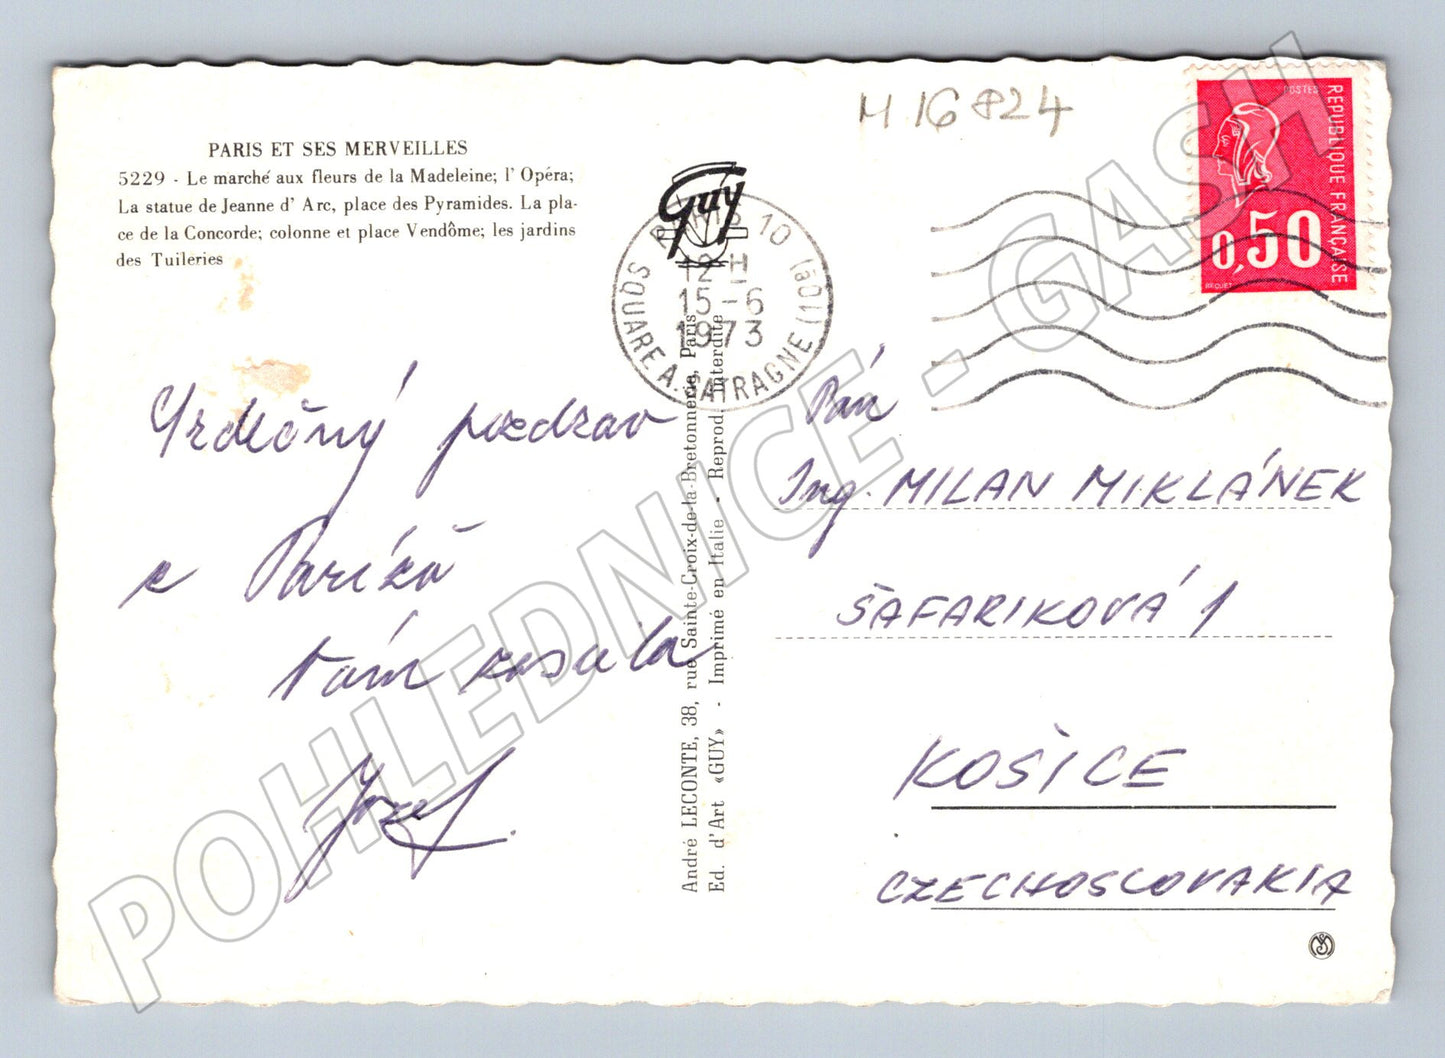 PARIS ET SES MERVEILLES
5229 - Le marché aux fleurs de la Madeleine; l' Opéra;
La statue de Jeanne d' Arc, place des Pyramides. La pla-
ce de la Concorde; colonne et place Vendôme; les jardins
des Tuileries
M 16824
Guy
PARIS 10
12 H
15-6
1973
SQUARE A. SATRAGNE (10è)
POSTES
REPUBLIQUE FRANÇAISE
0,50
BEQUET
Srdečný pozdrav
z Paríža
Vám zasiela
Jozef.
André LECONTE, 38, rue Sainte-Croix-de-la-Bretonnerie, Paris
Ed. d'Art «GUY» - Imprimé en Italie - Reprod. interdite
Pán
Ing. MILAN MIKLÁNEK
ŠAFARIKOVÁ 1
KOŠICE
CZECHOSLOVAKIA
POHLEDNICE - GASH